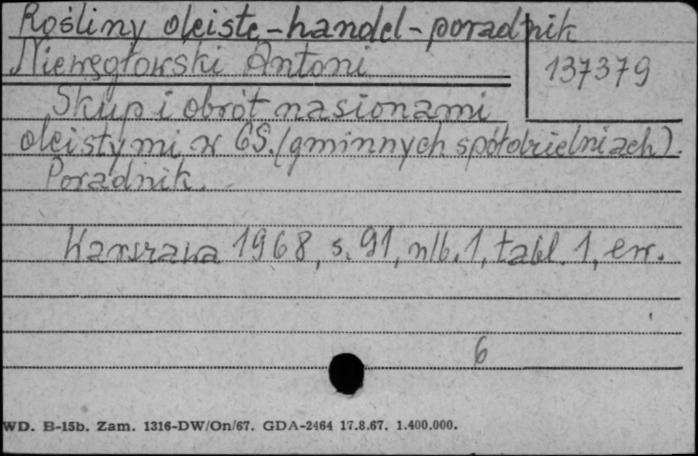 Rośliny oleiste-handel-poradnik
Niewęgłowski Antoni
137379
Skup i obrót nasionami
oleistymi w GS. (gminnych spółdzielniach).
Poradnik.
Warszawa 1968, s. 91, nlb. 1, tabl. 1, err.
6
WD. B-15b. Zam. 1316-DW/On/67. GDA-2464 17.8.67. 1.400.000.